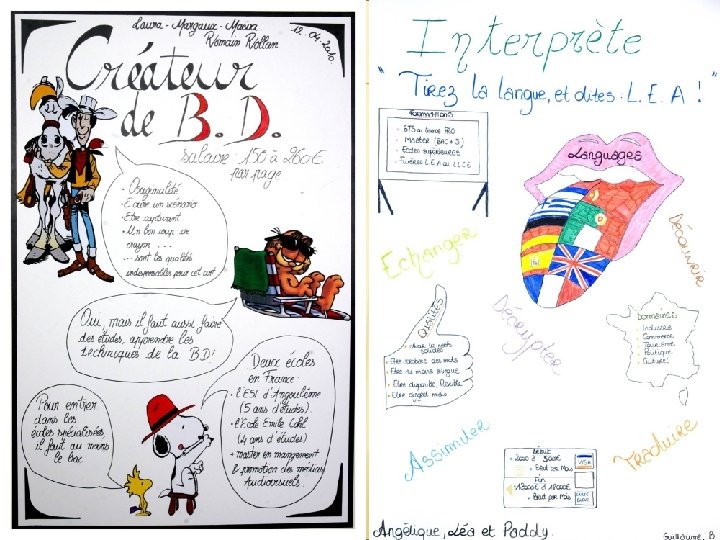 Laura - Margaux - Marina
Romain Rollan
12.04.2010
Créateur
de B.D.
Salaire 150 à 260€
par page
- Originalité
- Ecrire un scénario
- Etre captivant
- Un bon coup de
crayon ...
... sont les qualités
indispensables pour cet art.
Oui, mais il faut aussi faire
des études, apprendre les
techniques de la BD!
Deux écoles
en France
- L'ESI d'Angoulême
(5 ans d'études).
- L'école Emile Cohl
(4 ans d'études)
+ master en management
& promotion des médias
audiovisuels.
Pour entrer
dans les
écoles spécialisées,
il faut au moins
le bac
Interprète
"Tirez la langue, et dites : L.E.A !"
Formations
- BTS ou licence PRO
- Master (BAC + 5)
- Ecoles supérieures
- Filière L.E.A ou L.L.C.E
Languages
Echanger
Découvrir
Décrypter
Qualités
- Etre amoureux des mots
- Etre au moins bilingue
Domaines
- Industrie
- Commerce
- Tourisme
- Politique
- Culture!
Assimiler
Traduire
Début
- 2000 à 3000€
- Brut par Mois
Fin
- 12000€ à 18000€
- Brut par Mois
Angélique, Léa et Paddy.
Guillaume. B